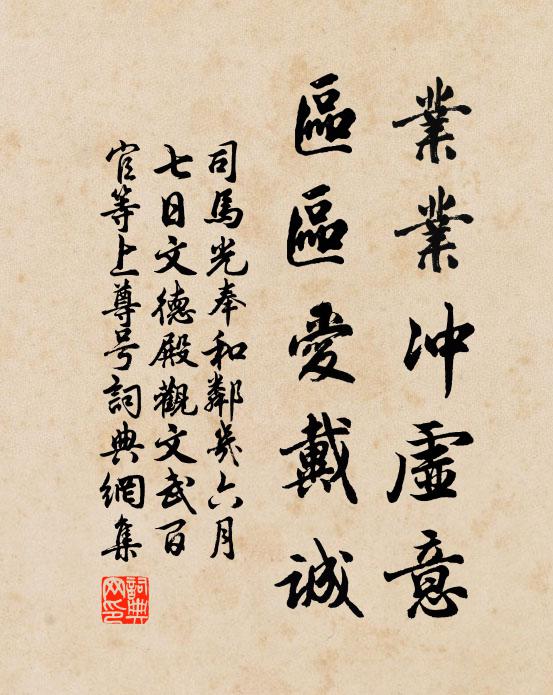 業業冲虛意
區區愛戴誠
司馬光奉和鄰幾六月
七日文德殿觀文武百
官等上尊号詞典網集
詞典
网印